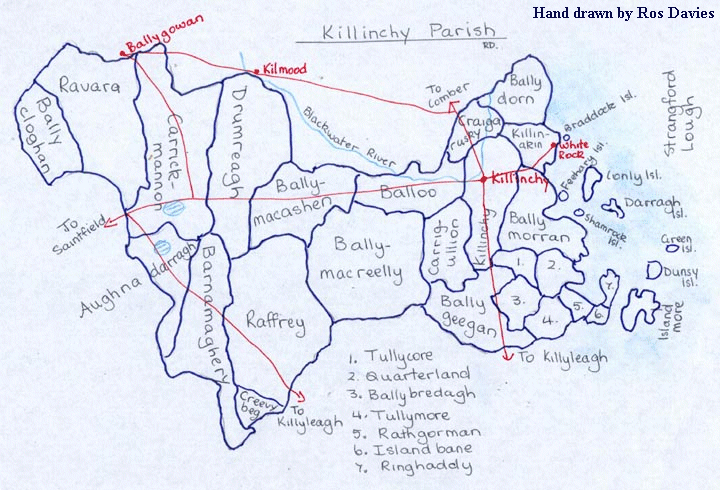 Hand drawn by Ros Davies
Killinchy Parish
RD.
Ballygowan
Kilmood
To
Comber
Bally
dorn
Strangford
Lough
Ravara
Bally
cloghan
Carrick-
mannon
Drumreagh
Blackwater River
Craiga
rusky
Killin-
akin
Braddock Isl.
White
Rock
Feehary Isl.
Conly Isl.
Darragh
Isl.
Shamrock
Isl.
Green
Isl.
Dunsy
Isl.
Island
more
Killinchy
Bally-
macashen
Balloo
To
Saintfield
Aughna
darragh
Barnamaghery
Raffrey
Bally-
macreelly
Carrig
ullior
Killinchy
Bally
morran
Bally
geegan
1.
2.
3.
4.
5.
6.
7.
Creevy
beg
To
Killyleagh
To Killyleagh
1. Tullycore
2. Quarterland
3. Ballybredagh
4. Tullymore
5. Rathgorman
6. Island bane
7. Ringhaddy